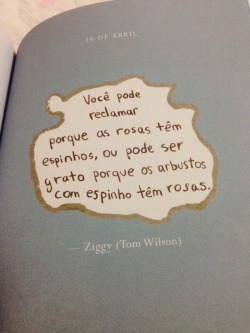 16 DE ABRIL
Você pode
reclamar
porque as rosas têm
espinhos, ou pode ser
grato porque os arbustos
com espinho têm rosas.
— Ziggy (Tom Wilson)